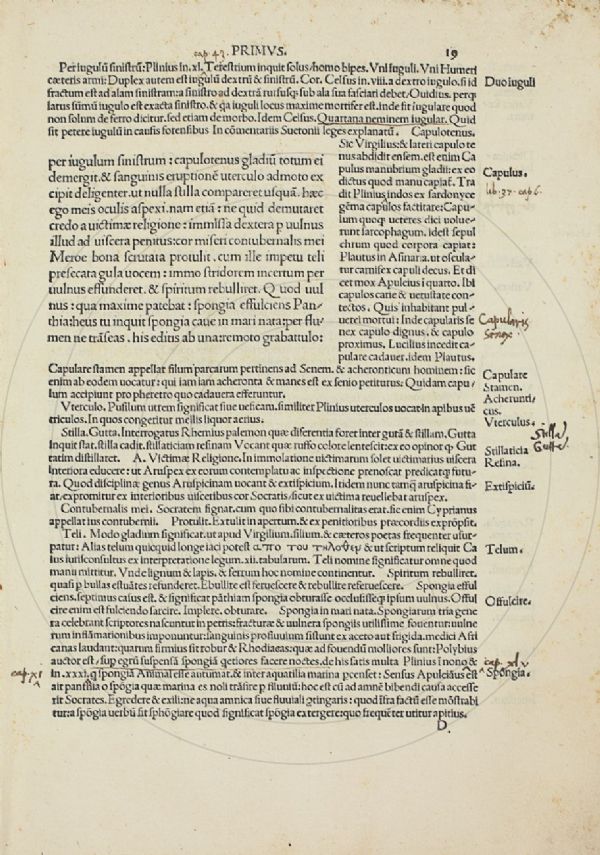 cap. 47.
PRIMVS. 19
Per iugulū sinistrū: Plinius in. xl. Terestrium inquit solus/homo bipes. Vni iuguli. Vni Humeri
cæteris armi: Duplex autem est iugulū dextrū & sinistrū. Cor. Celsus in. viii. a dextro iugulo. si id
fractum est ad alam sinistram: a sinistro ad dextrā rursusq; sub ala sua fasciari debet/Ouidius. perq;
latus sūmū iugulo est exacta sinistro. & qa iuguli locus maxime mortifer est. inde fit iugulare quod
non solum de ferro dicitur. sed etiam de morbo. Idem Celsus. Quartana neminem iugular. Quid
sit petere iugulū in causis forensibus In cōmentariis Suetonii leges explanatū. Capulotenus.
Duo iuguli
Sic Virgilius: & lateri capulo te
nus abdidit ensem. est enim Ca
pulus manubrium gladii: ex eo
dictus quod manu capiat. Tra
dit Plinius indos ex sardonyce
gēma capulos factitare: Capu-
lum quoq; ueteres dici uolue-
runt sarcophagum. idest sepul
chrum quod corpora capiat:
Plautus in Asinaria. ut oscula-
tur carnifex capuli decus. Et di
cet mox Apuleius i quarto. Ibi
capulos carie & uetustate con-
tectos. Quis inhabitant pul-
uerei mortui: Inde capularis se
nex capulo dignus. & capulo
proximus. Lucilius incedit ca-
pulare cadauer. idem Plautus.
Capulus.
lib. 37. cap 6.
Capularis
Senex.
per iugulum sinistrum: capulotenus gladiū totum ei
demergit. & sanguinis eruptionē uterculo admoto ex
cipit deligenter. ut nulla stilla compareret usquā. hæc
ego meis oculis aspexi. nam etiā: ne quid demutaret
credo a uictimæ religione: immissa dextera p uulnus
illud ad uiscera penitus: cor miseri contubernalis mei
Meroe bona scrutata protulit. cum ille impetu teli
presecara gula uocem: immo stridorem incertum per
uulnus effunderet. & spiritum rebulliret. Quod uul
nus: qua maxime patebat: spongia effulciens Pan-
thia: heus tu inquit spongia caue in mari nata: per flu-
men ne trāseas. his editis ab una: remoto grabattulo:
Capulare stamen appellat filum parcarum pertinens ad Senem. & acheronticum hominem: sic
enim ab eodem uocatur: qui iam iam acheronta & manes est ex senio petiturus: Quidam capu/
lum accipiunt pro pheretro quo cadauera efferuntur.
Vterculo. Pusillum utrem significat siue uesicam. similiter Plinius uterculos uocat in apibus uē
triculos. In quos congeritur mellis liquor aerius.
Stilla. Gutta. Interrogatus Rhemius palemon quæ differentia foret inter guttā & stillam. Gutta
inquit stat. stilla cadit. stillaticiam resinam Vocant quæ ruffo colore lentescit: ex eo opinor q Gut
tatim distillaret. A. Victimæ Religione. In immolatione uictimarum solet uictimarius uiscera
interiora educere: ut Aruspex ex eorum contemplatu ac inspectione prenoscat predicatq; futu-
ra. Quod disciplinæ genus Aruspicinam uocant & extispicium. Itidem nunc tamq aruspicina fi-
at/expromitur ex interioribus uisceribus cor Socratis/sicut ex uictima reuellebat aruspex.
Contubernalis mei. Socratem signat. cum quo sibi contubernalitas erat. sic enim Cyprianus
appellat ius contubernii. Protulit. Extulit in apertum. & ex penitioribus præcordiis exprōpsit.
Teli. Modo gladium significat. ut apud Virgilium. silium. & cæteros poetas frequenter usur-
patur: Alias telum quicquid longe iaci potest απο του τηλοθεν & ut scriptum reliquit Ca
ius iuriconsultus ex interpretatione legum. xii. tabularum. Teli nomine significatur omne quod
manu mittitur. Vnde lignum & lapis. & ferrum hoc nomine continentur. Spiritum rebulliret.
quasi p bullas estuātes: refunderet. Ebullit est feruescere & rebullire referuescere. Spongia efful
ciens. septimus casus est. & significat pāthiam spongia obturasse occlusisseq; ipsum uulnus. Offul
cire enim est fulciendo sarcire. Implere. obturare. Spongia in mari nata. Spongiarum tria gene
ra celebrant scriptores nascuntur in petris: fracturæ & uulnera spongiis utilissime fouentur: uulne
rum inflāmationibus imponuntur: sanguinis profluuium sistunt ex aceto aut frigida. medici Afri
canas laudant: quarum firmius sit robur & Rhodiacas: quæ ad fouendū molliores sunt: Polybius
auctor est/sup egrū suspensā spongiā qetiores facere noctes. de his satis multa Plinius I nono &
in. xxxi. q spongiā Animal esse autumat. & inter aquatilia marina pcenset: Sensus Apuleiāus est
ait panthia o spōgia quæ marina es noli trāsire p fluuiū: hoc est cū ad amnē bibendi causa accesse
rit Socrates. Egredere & exili: ne aqua amnica siue fluuiali gtingaris: quod ifra factū esse mōstrabi
tur: a spōgia uerbū sit sphōgiare quod significat spōgia extergere: quo frequēter utitur apitius.
D
Capulare
Stamen.
Acherunti/
cus.
Vterculus.
Stilla
Gutta
Stillaticia
Resina.
Extispiciū.
Telum.
Offulcire.
cap. xlv.
Spōngia.
cap. xi